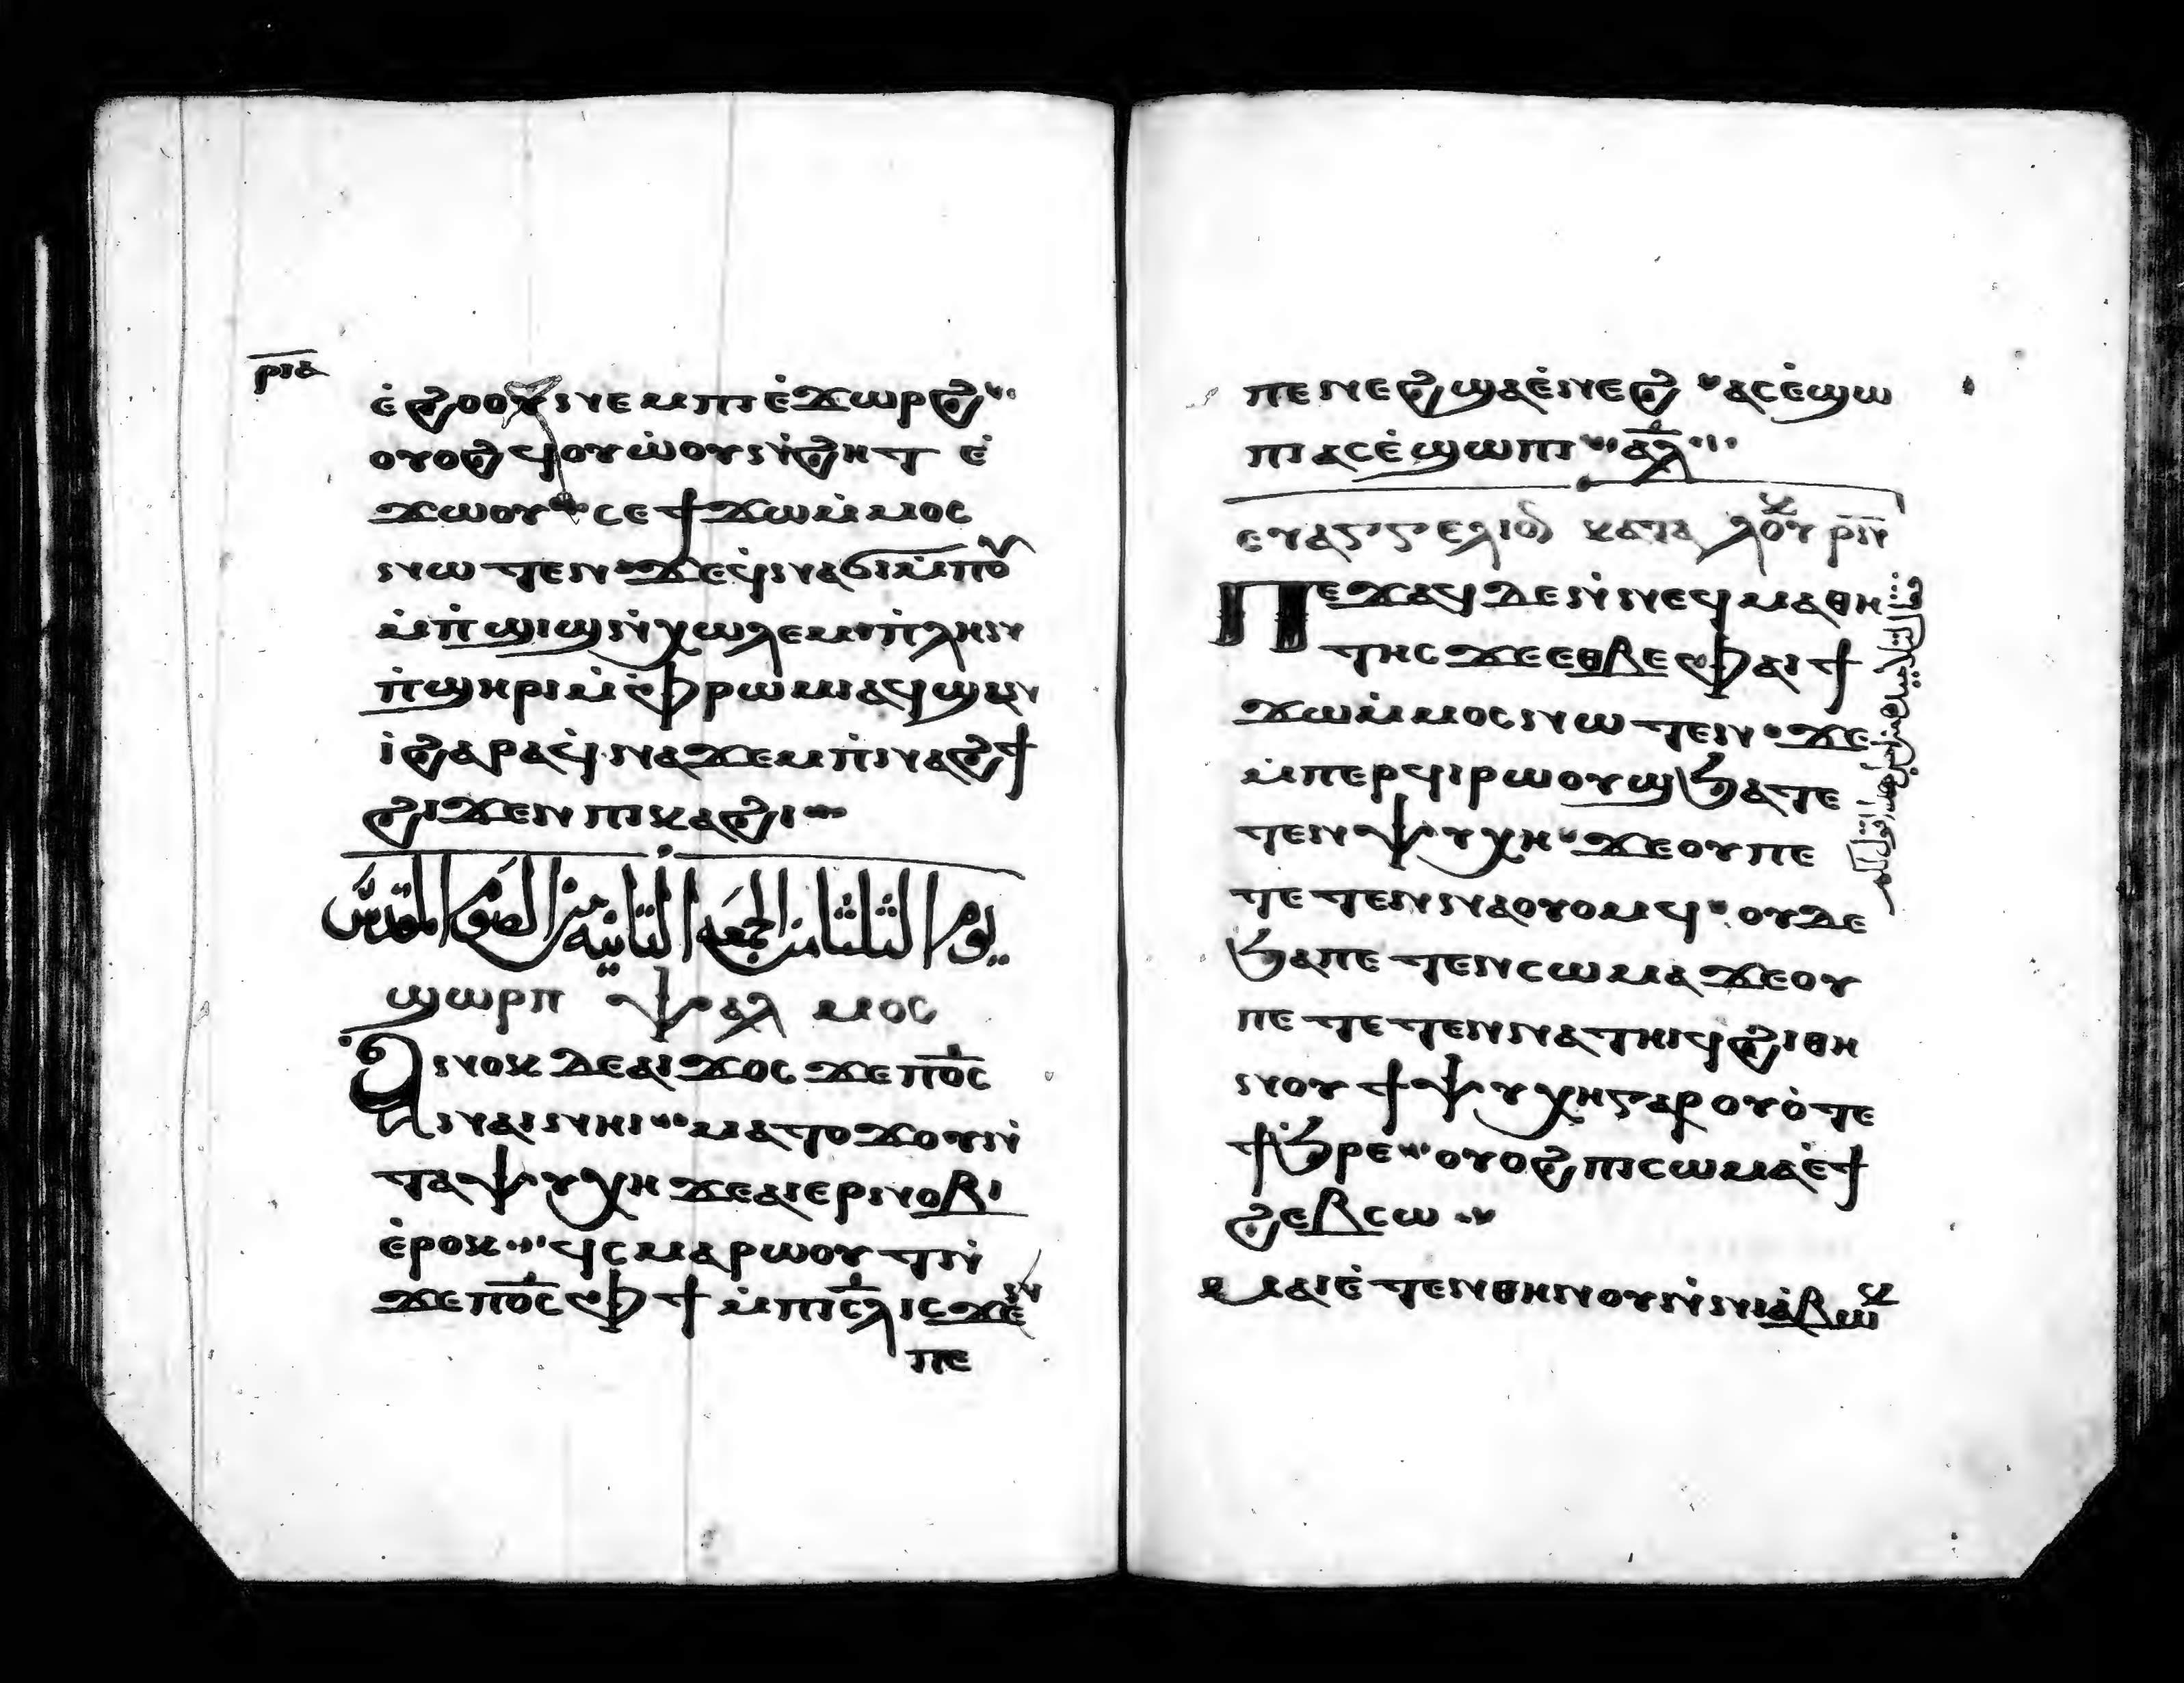 ⲣⲓⲁ
ⲉ̇ϩⲟⲟⲩ ⲛⲉⲙ ⲡⲓⲉ̇ϫⲱⲣϩ
ⲟⲩⲟϩ ϥⲟⲩⲱ̇ⲟⲩⲛ̇ϩⲏⲧ ⲉ̇
ϫⲱⲟⲩ ⲥⲉ ϯϫⲱ ⲙ̇ⲙⲟⲥ
ⲛⲱⲧⲉⲛ ϫⲉ ϥ̇ⲛⲁϭⲓ ⲙ̇ⲡⲟⲩ
ⲙ̇ⲡ̇ϣⲓϣ ⲛ̇ⲭⲱⲗⲉⲙ ⲡ̇ⲗⲏⲛ
ⲡ̇ϣⲏⲣⲓ ⲙ̇ⲫⲣⲱⲙⲓ ⲁϥϣⲁⲛ
ⲓ̇ ϩⲁⲣⲁ ϥ̇ⲛⲁϫⲉⲙ ⲡ̇ⲛⲁϩϯ
ϩⲓϫⲉⲛ ⲡⲓⲕⲁϩⲓ
يوم الثلثا من الجمعه الثانيه من الصوم المقدس
ϣⲱⲣⲡ ⲯⲁⲗⲙⲟⲥ
Ⲁⲛⲟⲕ ⲇⲉ ⲁⲓϫⲟⲥ ϫⲉ ⲡⲟ̅ⲥ
ⲛⲁⲓ ⲛⲏⲓ ⲙⲁⲧⲟⲩϫⲟ ⲩⲛ̇
ⲧⲁⲯⲩⲭⲏ ϫⲉ ⲁⲓⲉⲣⲛⲟⲃⲓ
ⲉ̇ⲣⲟⲕ ϥⲥⲙⲁⲣⲱⲟⲩⲧ ⲛ̇
ϫⲉ ⲡⲟ̅ⲥ ⲫϯ ⲙ̇ⲡⲓⲥ̅ⲗ ⲓⲥϫⲉⲛ
ⲡⲉ
ⲡⲉⲛⲉϩ ϣⲁ ⲉ̇ⲛⲉϩ ⲁⲥⲉ̇ϣⲱ
ⲡⲓ ⲁⲥⲉ̇ϣⲱⲡⲓ ⲁ̅ⲗ
ⲉⲩⲁⲅⲅⲉⲗⲓⲟⲛ ⲕⲁⲧⲁ ⲗⲟⲩⲕ ⲣⲓⲛ
Ⲡⲉϫⲁϥ ⲇⲉ ⲛ̇ⲛⲉϥⲙⲁⲑⲏ
ⲧⲏⲥ ϫⲉ ⲉⲑⲃⲉ ⲫⲁⲓ ϯ
ϫⲱ ⲙ̇ⲙⲟⲥ ⲛⲱⲧⲉⲛ ϫⲉ
ⲙ̇ⲡⲉⲣϥⲓⲣⲱⲟⲩϣ ϧⲁ ⲧⲉ
ⲧⲉⲛⲯⲩⲭⲏ ϫⲉ ⲟⲩ ⲡⲉ
ⲧⲉⲧⲉⲛⲛⲁⲟⲩⲟⲙϥ ⲟⲩⲇⲉ
ϧⲁ ⲡⲉⲧⲉⲛⲥⲱⲙⲁ ϫⲉ ⲟⲩ
ⲡⲉⲧⲉⲧⲉⲛⲛⲁⲧⲏⲓϥ ϩⲓⲑⲏ
ⲛⲟⲩ ϯⲯⲩⲭⲏ ⲅⲁⲣ ⲟⲩⲟ̇ⲧ ⲉ
ϯϧ̇ⲣⲉ ⲟⲩⲟϩ ⲡⲓⲥⲱⲙⲁ ⲉ̇ϯ
ϩⲉⲃⲥⲱ
ⲙⲁⲓⲉ̇ⲧⲉⲛⲑⲏⲛⲟⲩ ⲛ̇ⲛⲓⲁ̇ⲃⲱⲕ